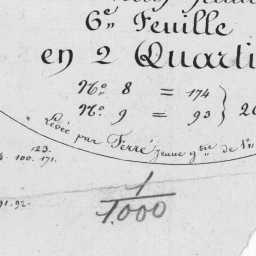 6e Feuille
en 2 Quarti
No. 8 = 174
No. 9 = 93 } 26
Levée par Ferré jeune gme de
123.
100. 171.
91. 92.
1
1.000